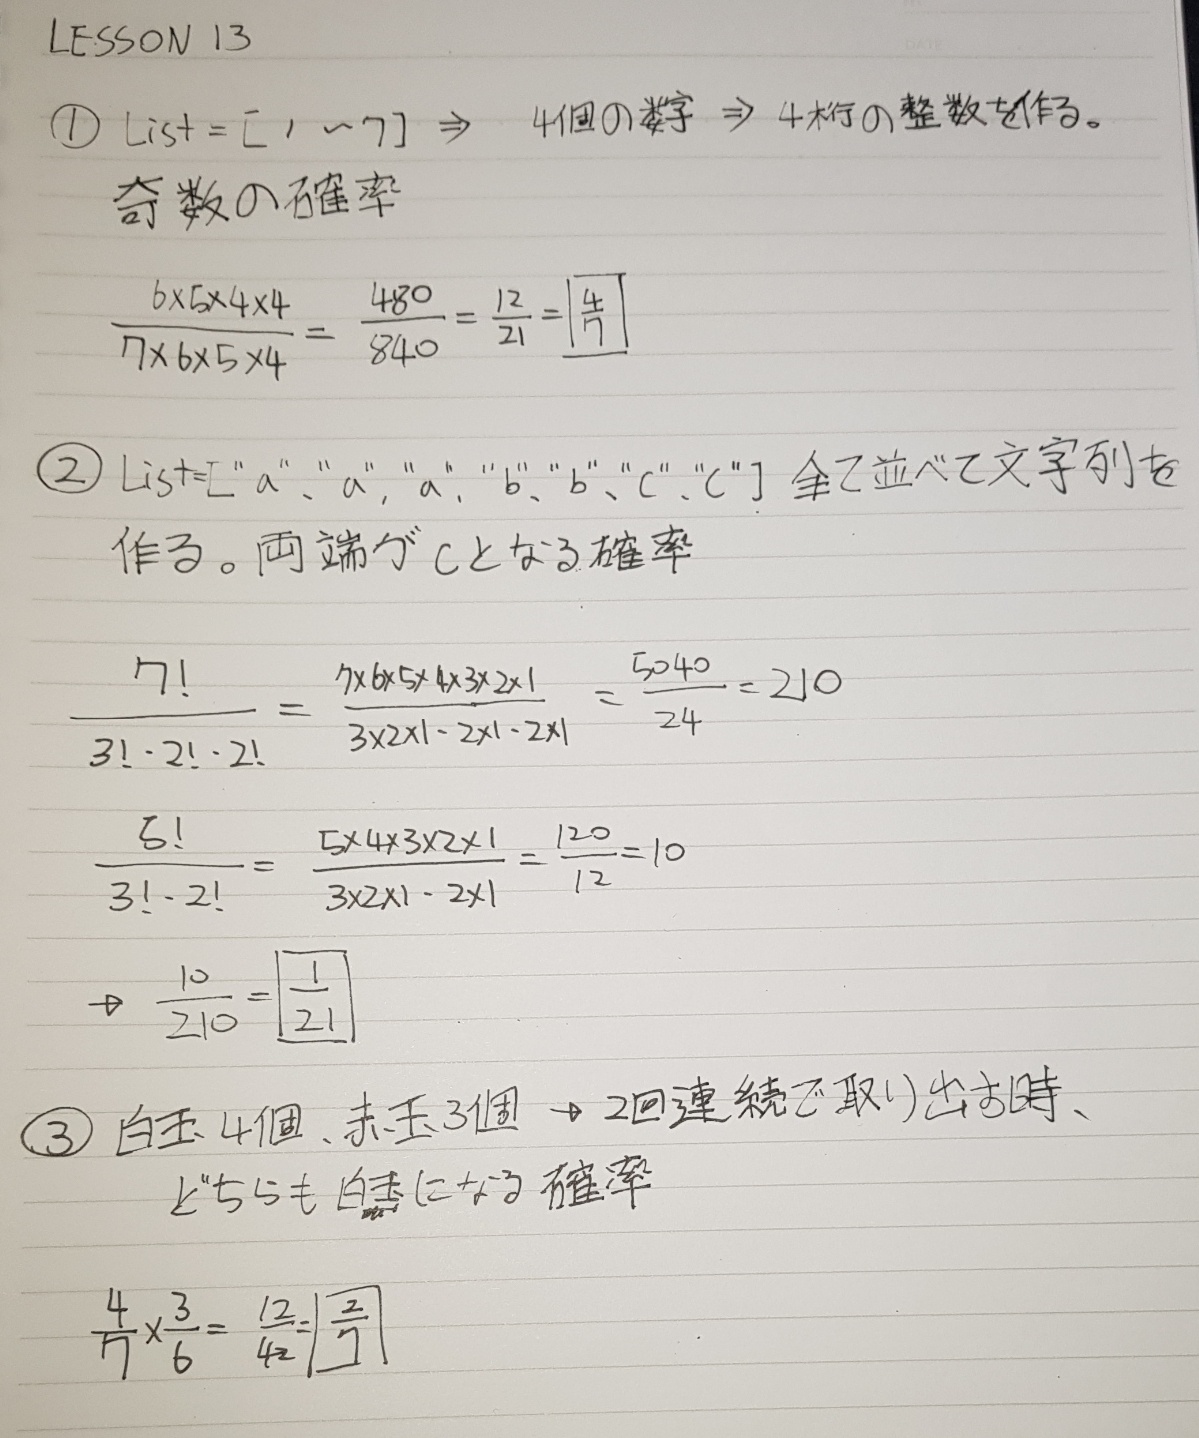 LESSON 13
① List = [1〜7] ⇒ 4個の数字 ⇒ 4桁の整数を作る。
奇数の確率
6×5×4×4 / 7×6×5×4 = 480/840 = 12/21 = 4/7
② List=["a"、"a", "a"、"b"、"b"、"c"、"c"] 全て並べて文字列を
作る。両端がcとなる確率
7! / 3!・2!・2! = 7×6×5×4×3×2×1 / 3×2×1・2×1・2×1 = 5040/24 = 210
5! / 3!・2! = 5×4×3×2×1 / 3×2×1・2×1 = 120/12 = 10
→ 10/210 = 1/21
③ 白玉4個、赤玉3個 → 2回連続で取り出す時、
どちらも白玉になる確率
4/7 × 3/6 = 12/42 = 2/7